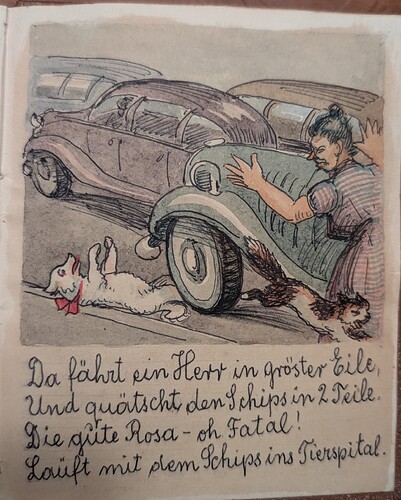 Da fährt ein Herr in gröster Eile,
Und quätscht den Schips in 2 Teile.
Die gute Rosa - oh Fatal!
Läuft mit dem Schips ins Tierspital.